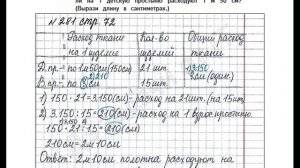 ли на 1 детскую простыню расходуют 1 м 50 см?
(Вырази длину в сантиметрах.)
№ 281 стр. 72
Расход ткани на 1 изделие
Кол-во изделий
Общий расход на ткани
Д. пр. – по 1м50см (150см) 21 шт. 3150
210
В. пр. – по ? см 15 шт. ? см (один.)
1) 150 · 21 = 3.150 (см) - расход на 21 шт. (на 15 шт.)
2) 3.150 : 15 = 210 (см) - расход на 1 взросл. простыню.
150 · 21 : 15 = 210 (см)
210 см = 2м 10см
Ответ: 2м 10см полотна расходуют на